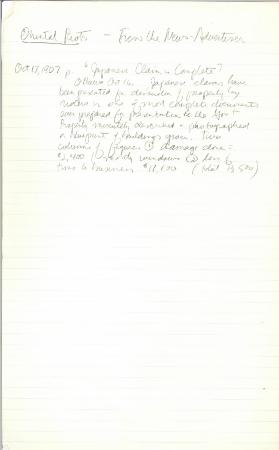 Oriental Riots - From the News-Advertiser
Oct 17, 1907 p. "Japanese Claim is Complete"
Ottawa Oct 16. Japanese claims have
been presented for destruction of property by
rioters in one of most complete documents
ever prepared for presentation to the Govt
Property minutely described - photographed
& blueprint of buildings given. Two
columns of figures ① damage done =
$2,400 ( windows ② loss of
time & business $11,100 (total 13,500)